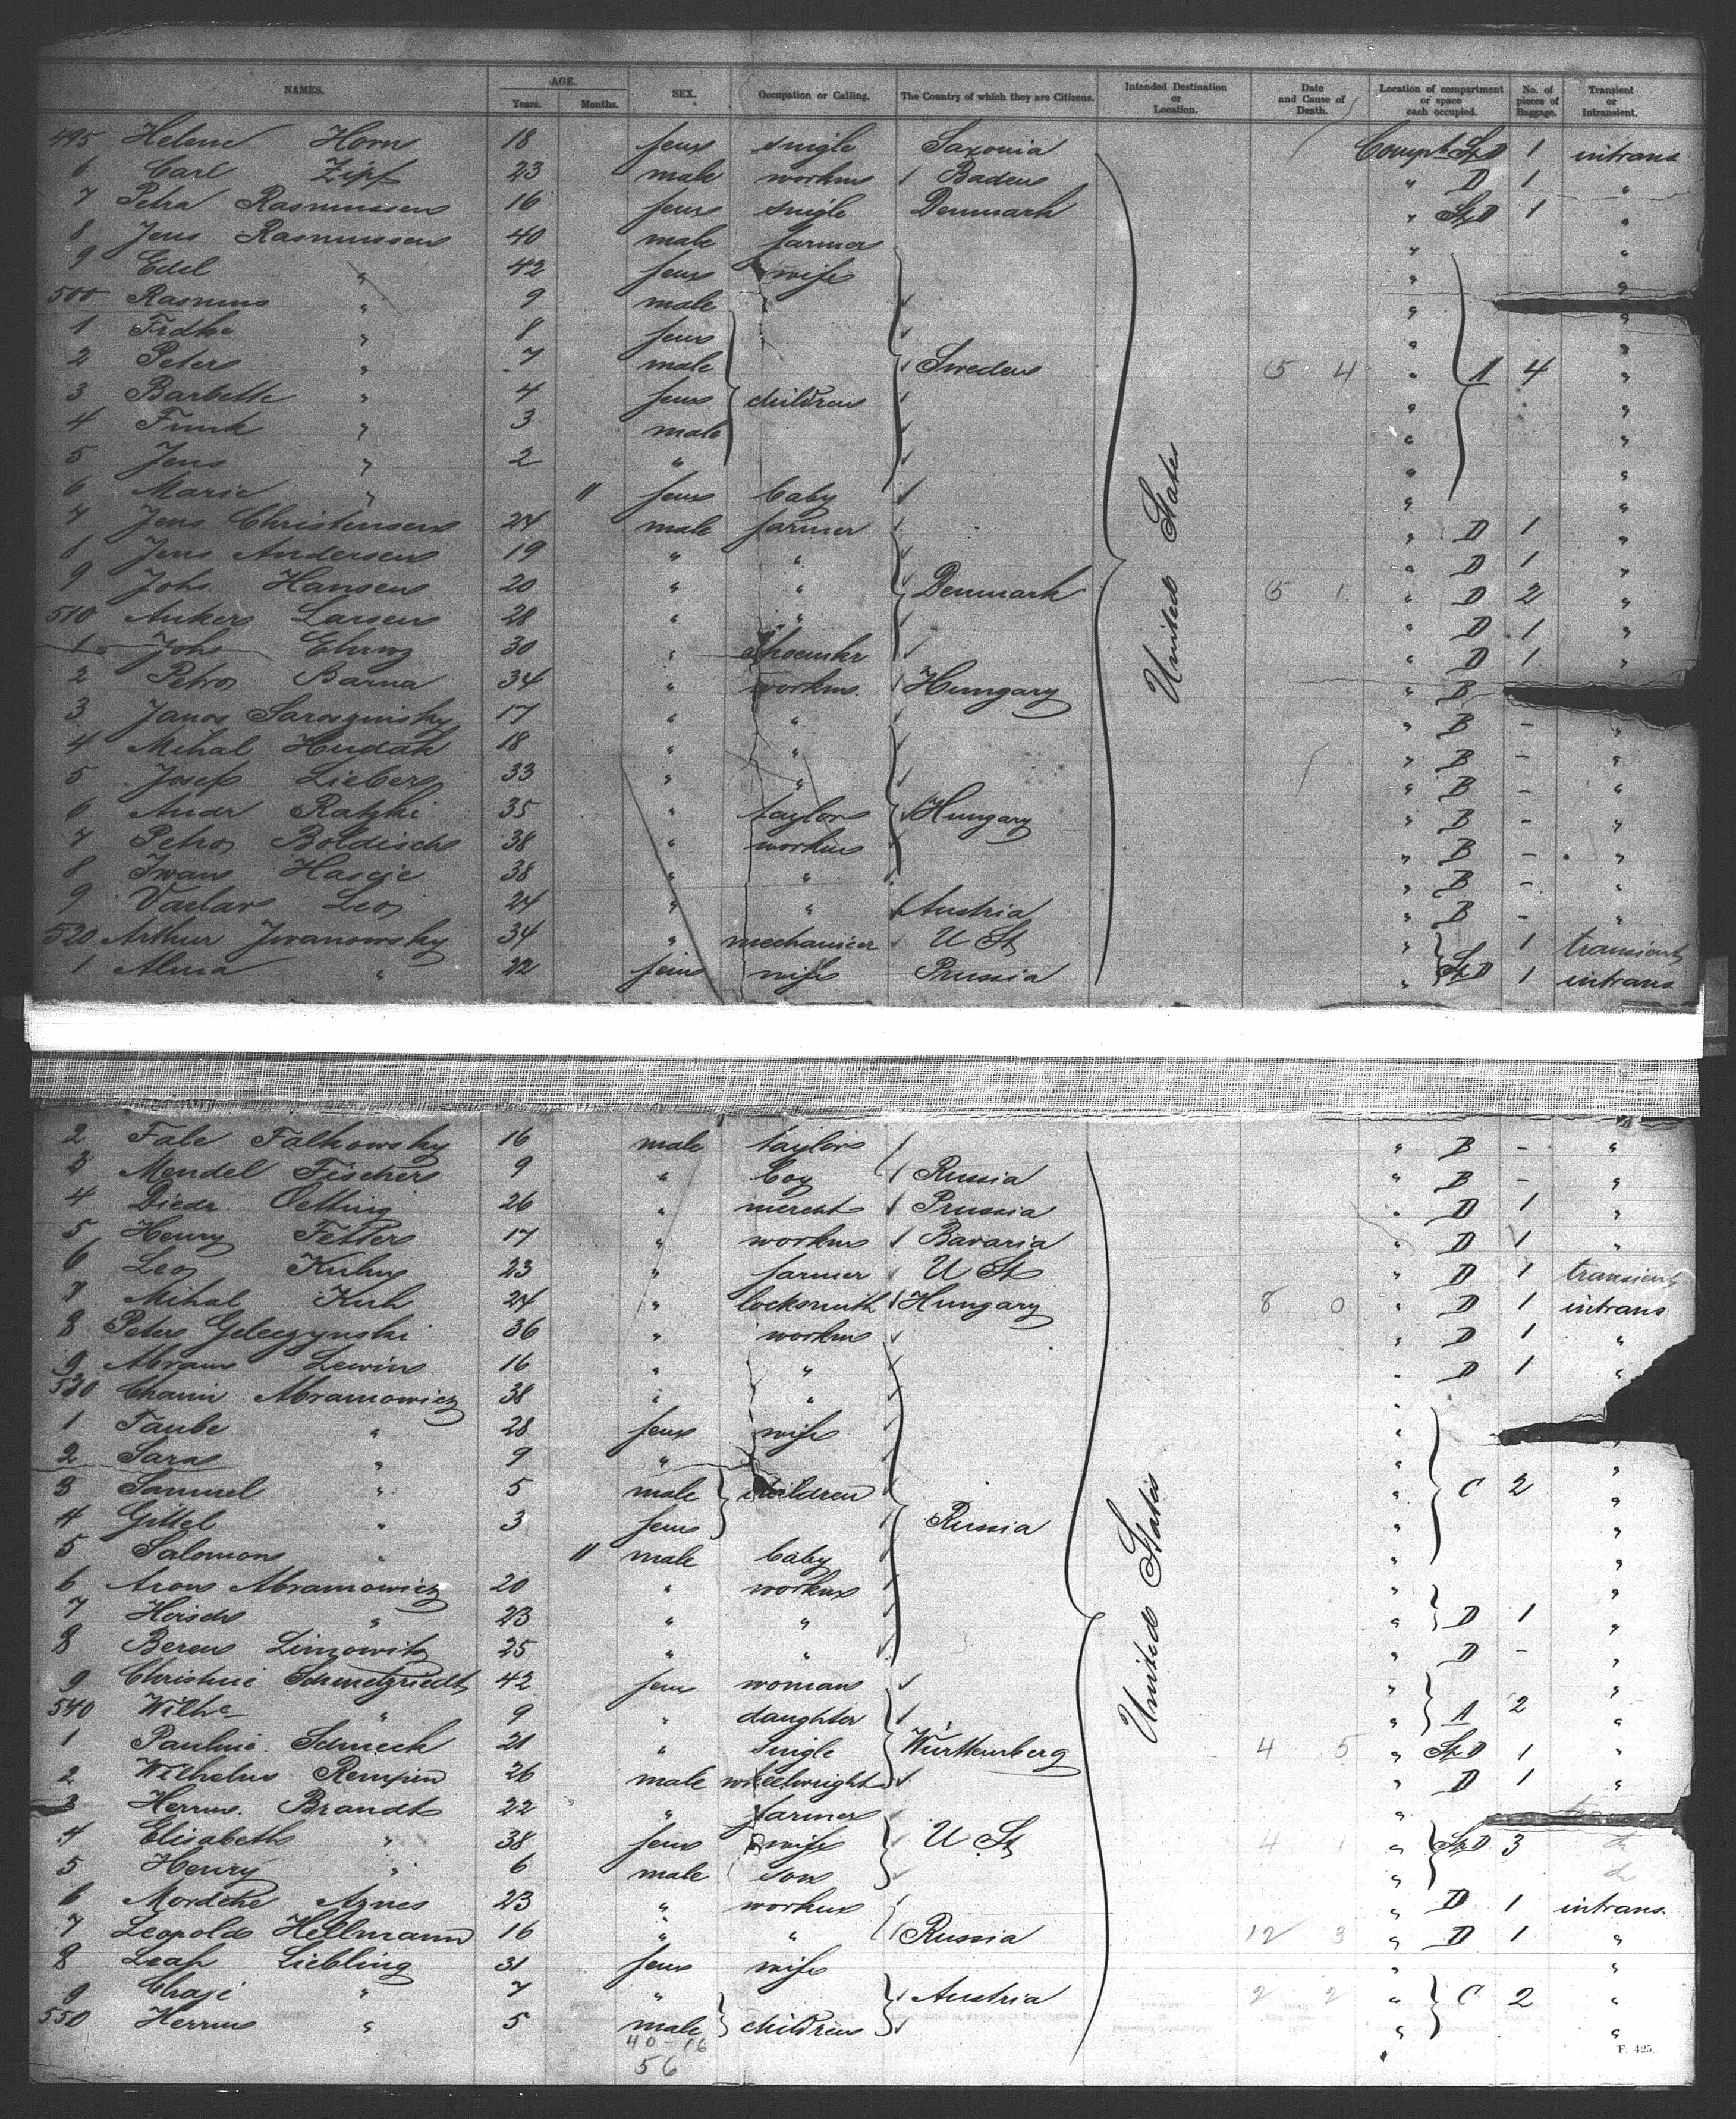 NAMES. AGE. Years. Months. SEX. Occupation or Calling. The Country of which they are Citizens. Intended Destination or Location. Date and Cause of Death. Location of compartment or space each occupied. No. of pieces of Baggage. Transient or Intransient.
495 Helene Horn 18 fem single Saxonia Compt StD 1 intrans
6 Carl Zipf 23 male workm Baden " D 1 "
7 Petra Rasmussen 16 fem single Denmark " StD 1 "
8 Jens Rasmussen 40 male farmer " "
9 Edel " 42 fem wife " "
500 Rasmus " 9 male " "
1 Frdke " 8 fem " "
2 Peter " 7 male Sweden 5 4 " A 4 "
3 Barbette " 4 fem children " "
4 Funk " 3 male " "
5 Jens " 2 " " "
6 Marie " 11 fem baby " "
7 Jens Christensen 24 male farmer " D 1 "
8 Jens Andersen 19 " " " D 1 "
9 Johs. Hansen 20 " " Denmark 5 1 " D 2 "
510 Ankers Larsen 28 " " " D 1 "
1 Joh 30 " shoemkr " D 1 "
2 Petro Barna 34 " workm. Hungary " B
3 Janos 17 " " " B - "
4 Mihal Hudak 18 " " " B - "
5 Josef Lieber 33 " " " B - "
6 Andr Ratzki 35 " taylor Hungary " B - "
7 Petro Boldisch 38 " workm " B - "
8 Iwan 38 " " " B - "
9 Vaclav Leo 24 " " Austria " B - "
520 Arthur Iwanowsky 34 " mechanicer U St " StD 1 transient
1 Alma " 22 fem wife Prussia " 1 intrans
United States
2 Fale Falkowsky 16 male taylor " B - "
3 Mendel Fischer 9 " boy Russia " B - "
4 Diedr. Oetting 26 " mercht Prussia " D 1 "
5 Henry Fetter 17 " workm Bavaria " D 1 "
6 Leo Kuhn 23 " farmer U St " D 1 transient
7 Mihal Kuh 24 " locksmith Hungary 8 0 " D 1 intrans
8 Peter Geleczynski 36 " workm " D 1 "
9 Abram Lewin 16 " " " D 1 "
530 Chaim Abramowicz 38 " " "
1 Taube " 28 fem wife " "
2 Sara " 9 " " "
3 Samuel " 5 male children " C 2 "
4 Gittel " 3 fem Russia " "
5 Salomon " 11 male baby " "
6 Aron Abramowicz 20 " workm " "
7 Hirsch " 23 " " " D 1 "
8 Beren Limowitz 25 " " " D - "
9 Christine Schmetzriedt 42 fem woman " "
540 Wilhe " 9 " daughter " A 2 "
1 Pauline Schneck 21 " single Württemberg 4 5 " StD 1 "
2 Wilhelm Rempim 26 male wheelwright " D 1 "
3 Herrm. Brandt 22 " farmer "
4 Elisabeth " 38 fem wife U St 4 1 " StD 3
5 Henry " 6 male son "
6 Mordche Agnes 23 " workm " D 1 intrans.
7 Leopold Hellmann 16 " " Russia 12 3 " D 1 "
8 Leah Liebling 31 fem wife " "
9 Chaje " 7 " Austria 2 2 " C 2 "
550 Herrm " 5 male children " "
United States
40-16
56
F. 425.